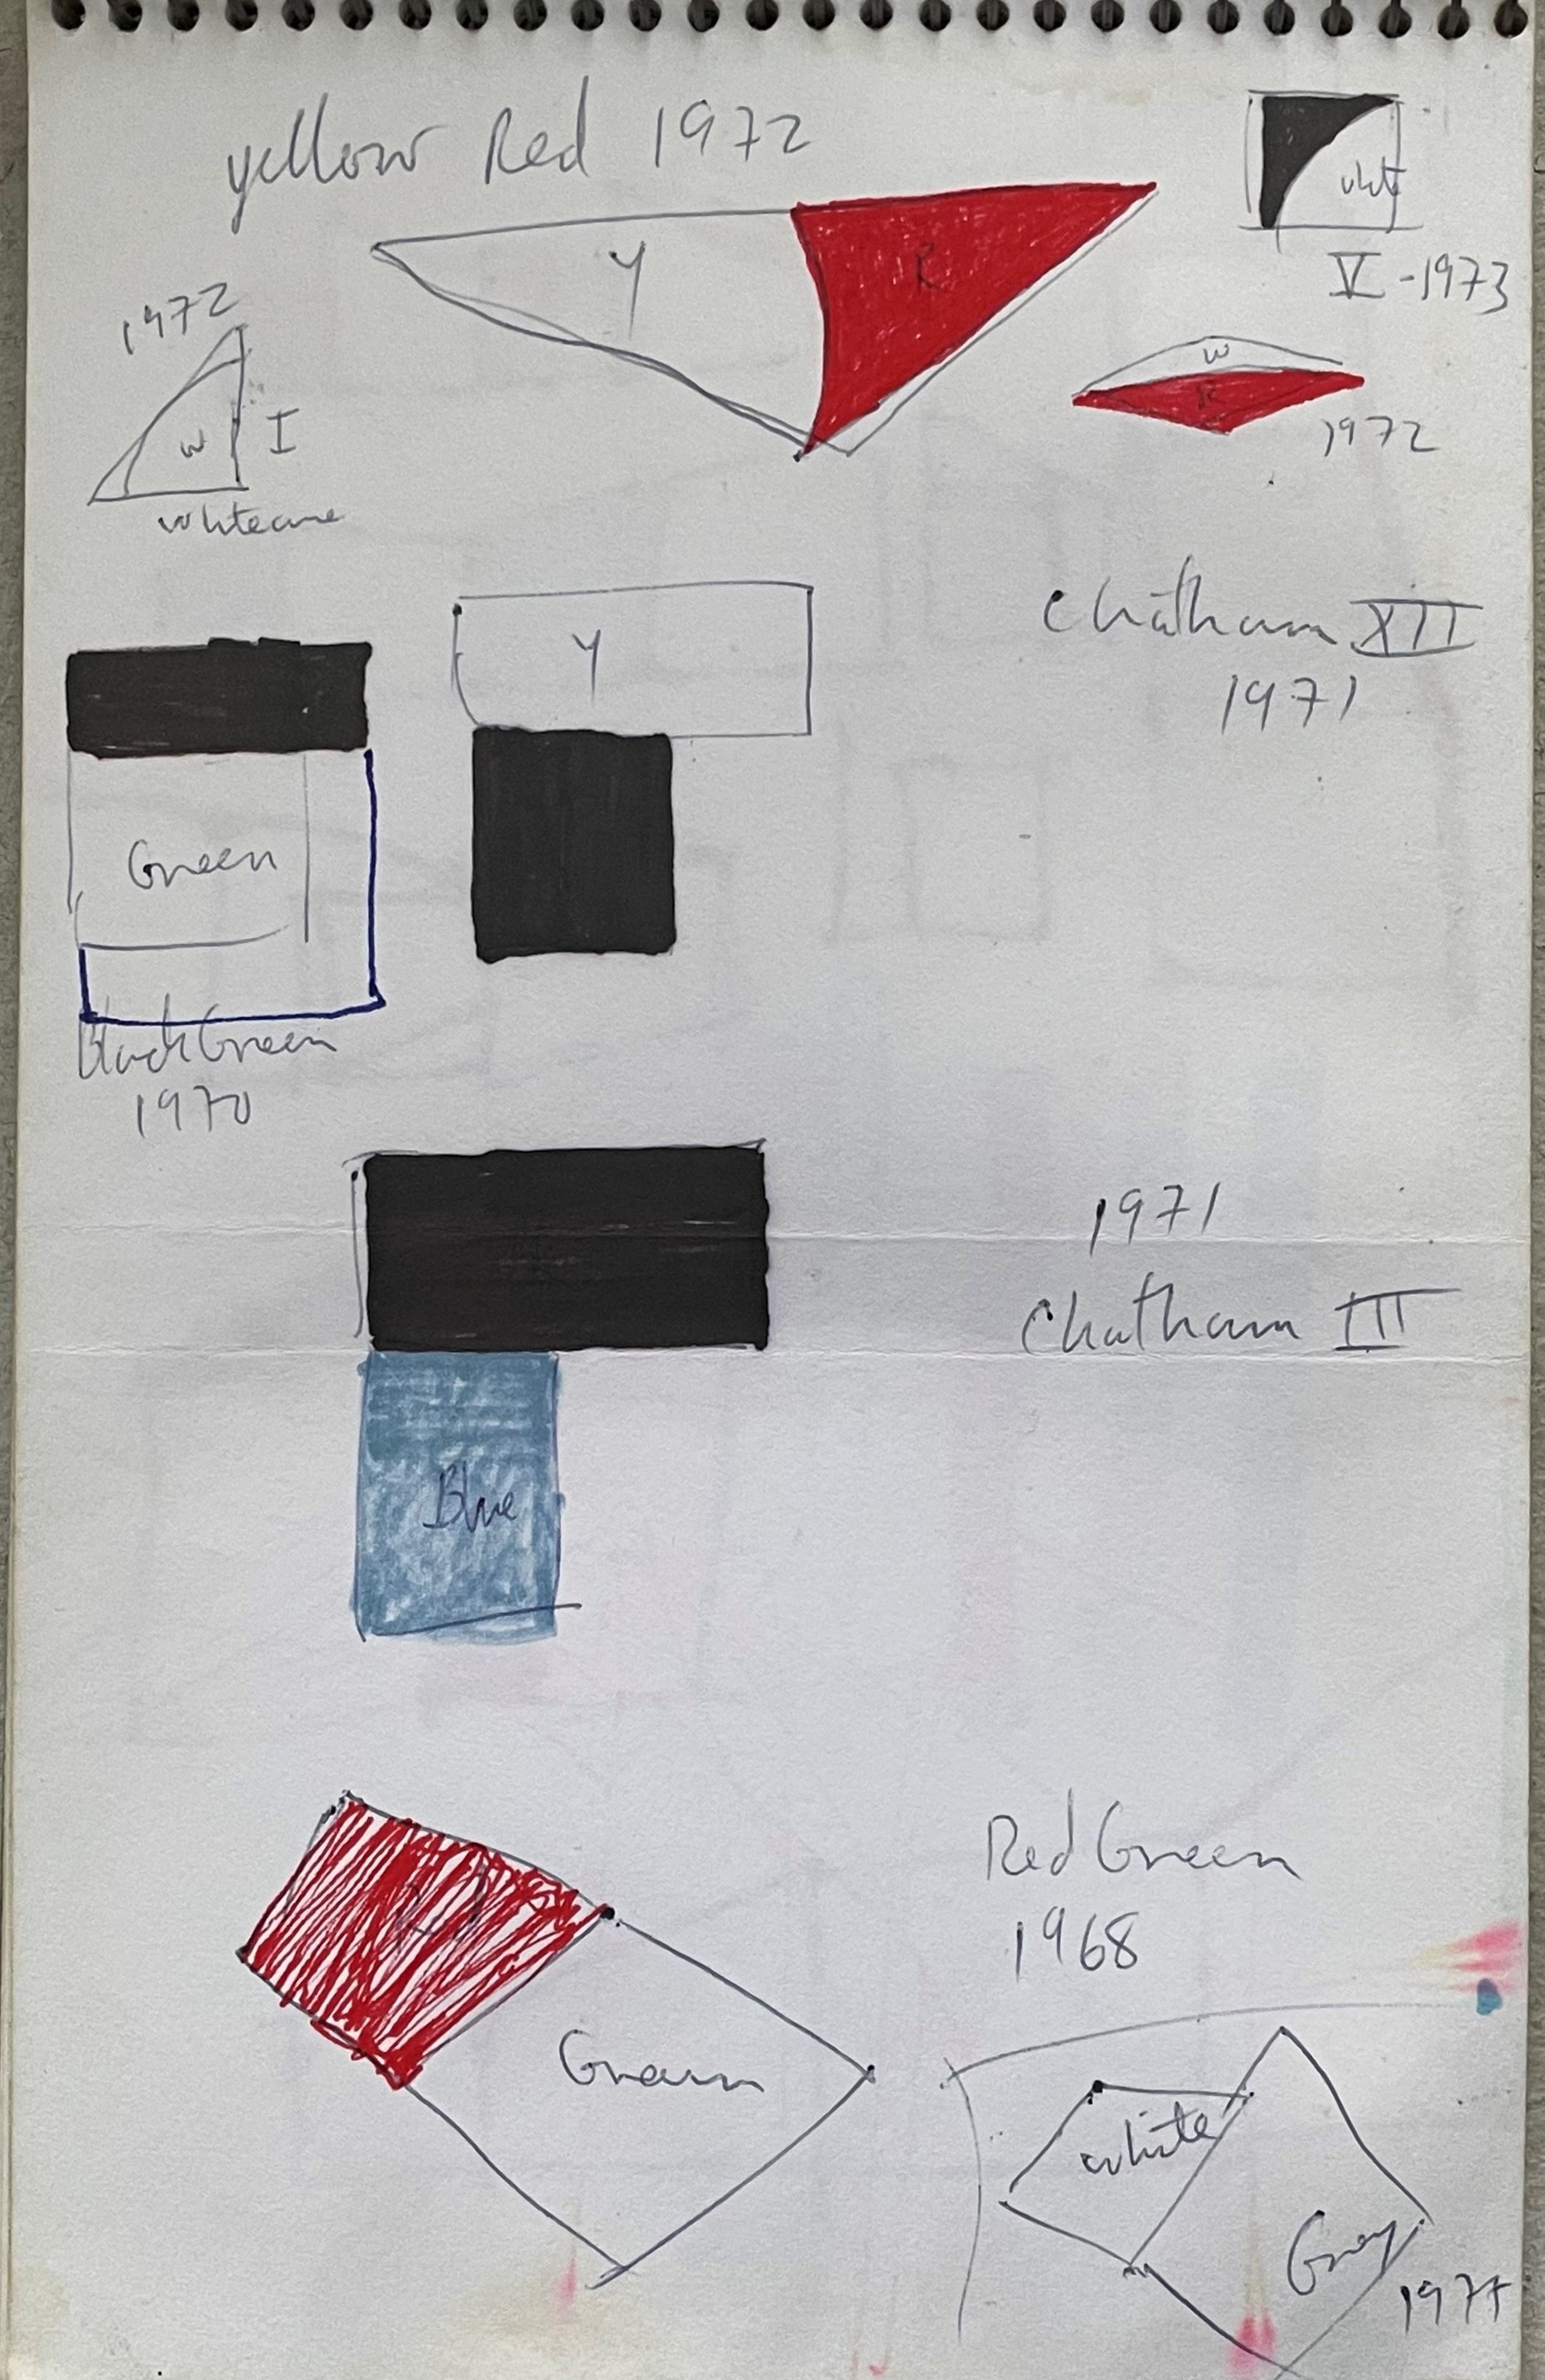 yellow Red 1972
Y
R
V - 1973
1972
W
I
W
R
1972
Y
Chatham XII
1971
Green
Black Green
1970
1971
Chatham III
Blue
Red
Red Green
1968
Green
White
Gray